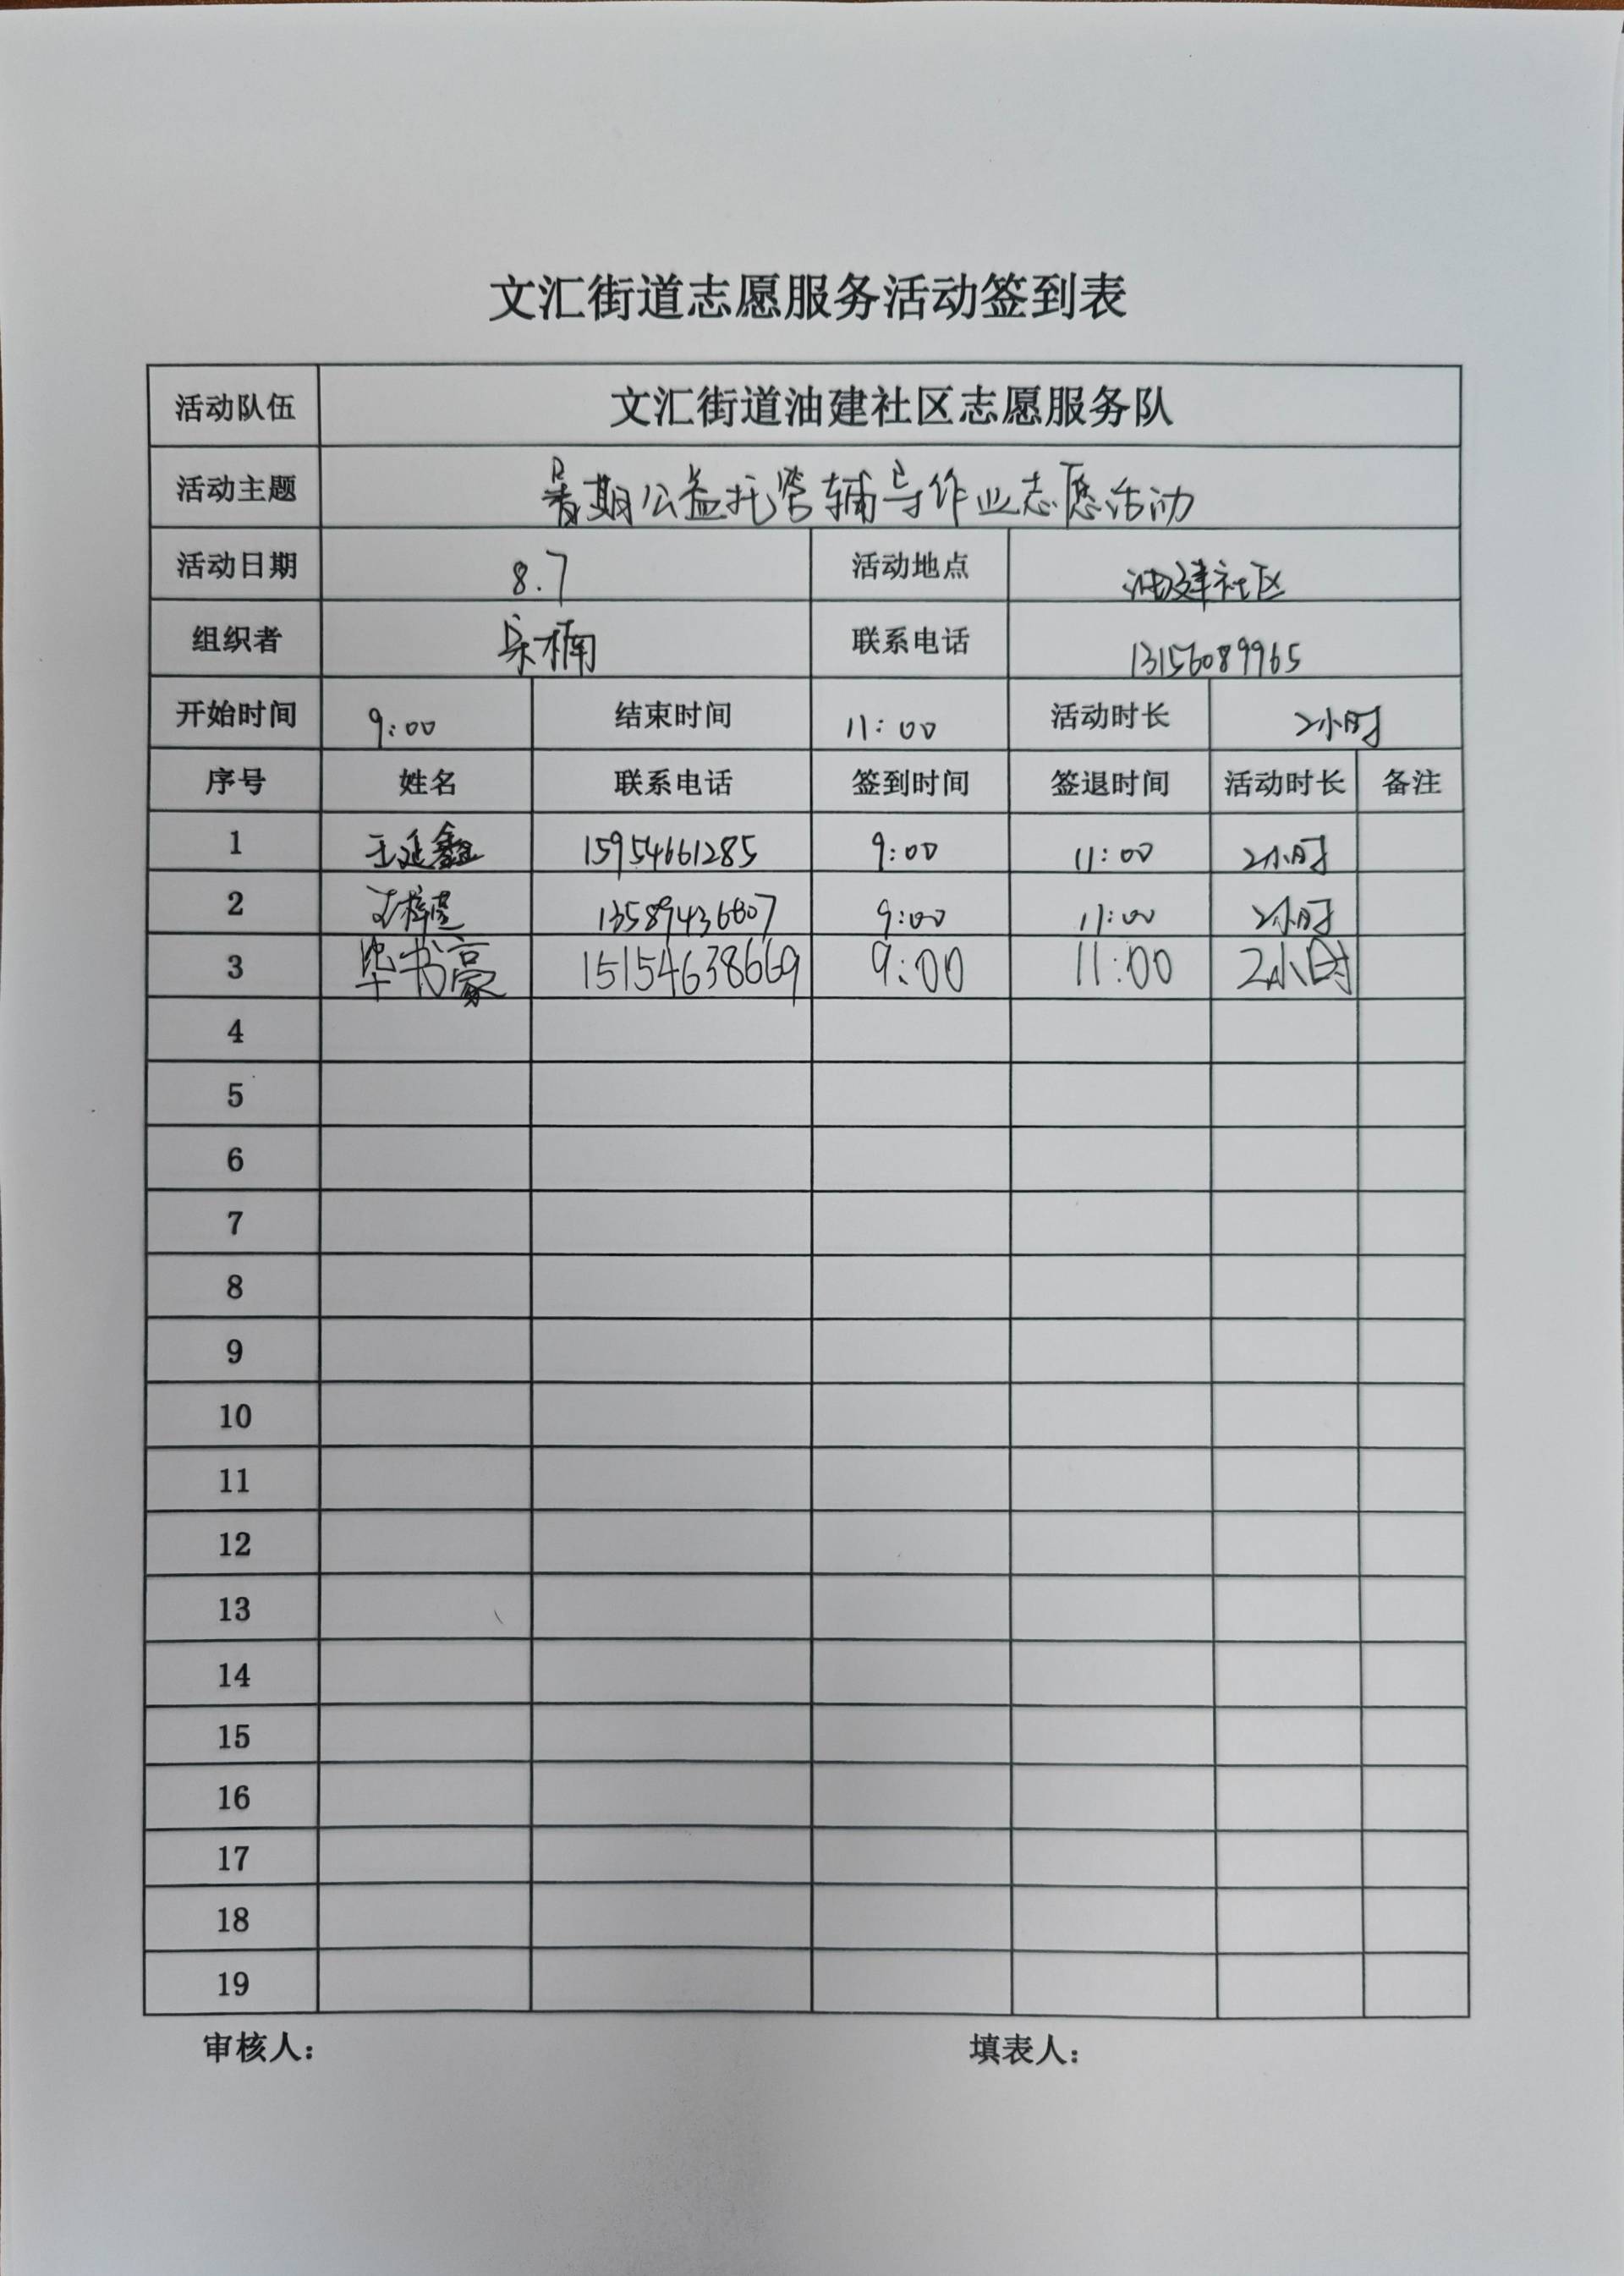 文汇街道志愿服务活动签到表
活动队伍 文汇街道油建社区志愿服务队
活动主题 暑期公益托管辅导作业志愿活动
活动日期 8.7 活动地点 油建社区
组织者 宋楠 联系电话 13156089965
开始时间 9:00 结束时间 11:00 活动时长 2小时
序号 姓名 联系电话 签到时间 签退时间 活动时长 备注
1 王延鑫 15954661285 9:00 11:00 2小时
2 9:00 11:00 2小时
3 毕书豪 15154638669 9:00 11:00 2小时
4
5
6
7
8
9
10
11
12
13
14
15
16
17
18
19
审核人： 填表人：